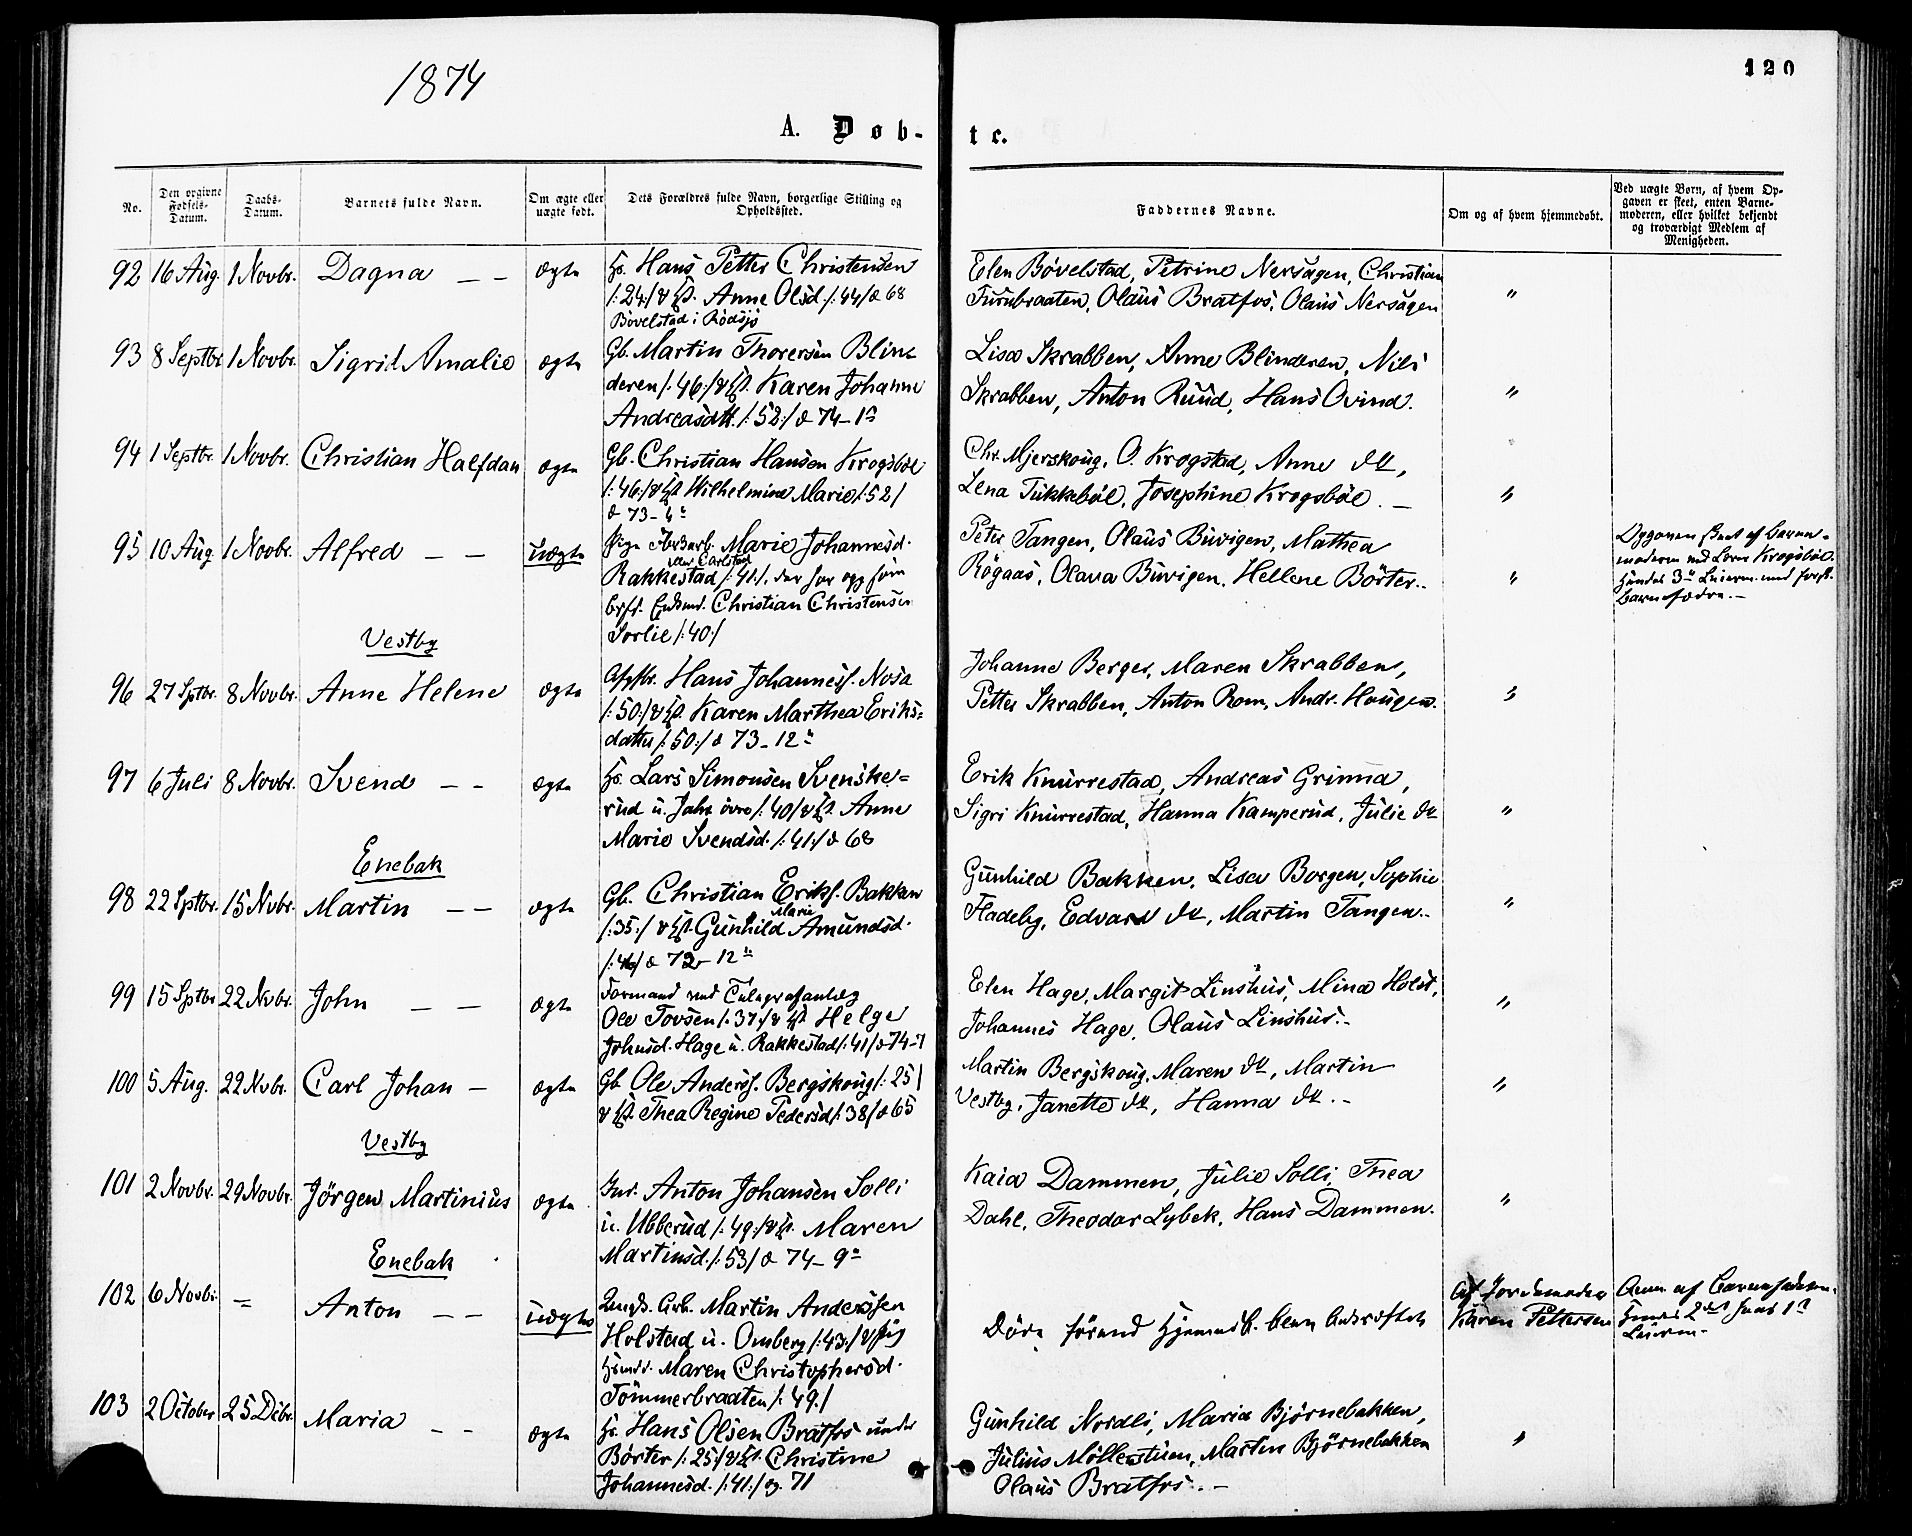 1874
120
A. Døb-
te.
No.
Den opgivne Fødsels-Datum.
Daabs-Datum.
Barnets fulde Navn.
Om ægte eller uægte født.
Dets Forældres fulde Navn, borgerlige Stilling og Opholdssted.
Faddernes Navne.
Om og af hvem hjemmedøbt.
Ved uægte Børn, af hvem Opgaven er skeet, enten Barnemoderen, eller hvilket bekjendt og troværdigt Medlem af Menigheden.
92 16 Aug. 1 Novbr. Dagna — — ægte
Hans Petter Christensen
/:24:/ & Anne Olsd. /:44/ d 68
Bövelstad i Rödsjö
Elen Bövelstad, Petrine Nersagen, Christian
Furubraaten, Olaus Bratfos, Olaus Nersagen
"
93 8 Septbr. 1 Novbr. Sigrid Amalie ægte
Gb. Martin Thorersen Blin-
deren /:46:/ & Karen Johanne
Andreasdtt. /:52:/ d 74 – 1
Lisa Skrabben, Anne Blinderen, Nils
Skrabben, Anton Ruud, Hans Ovind.
"
94 1 Septbr. 1 Novbr. Christian Halfdan ægte
Gb. Christian Hansen Krogsböl
/:46:/ & Wilhelmine Marie /:52/
d 73 – 4
Chr. Mjerskoug, O. Krogstad, Anne
Lena Tukkeböl, Josephine Krogsböl. —
"
95 10 Aug. 1 Novbr. Alfred — — uægte
Pige Marie Johannesd.
ved Carlstad
Rakkestad /:41:/, der har opg. som
Christian Christensen
Sorlie /:40:/
Peter Tangen, Olaus Buvigen, Mathea
Rögaas, Olava Buvigen, Hellene Börter.
"
Opgaven skeet af Barne-
moderen ved Krogsböl.
Hendes 3 Leierm. med
Barnefader. –
Vestby
96 27 Sptbr. 8 Novbr. Anne Helene ægte
Hans Johannesf. Nosa
/:50:/ & Karen Marthea Eriks-
datter /:50:/ d 73 – 12
Johanne Berger, Maren Skrabben,
Petter Skrabben, Anton Rom, Andr. Haugen.
"
97 6 Juli 8 Novbr. Svend — — ægte
Lars Simonsen Svenske-
rud u. övre /:40/ & Anne
Marie Svendsd. /:41:/ d 68
Erik Knurrestad, Andreas Grimna,
Sigri Knurrestad, Hanna Kamperud, Julie
"
Enebak
98 22 Sptbr. 15 Nvbr. Martin — — ægte
Gb. Christian Eriks. Bakken
Marie
/:35:/ & Gunhild Amundsd.
d 72 – 12
Gunhild Bakken, Lisa Borgen, Sophie
Fladeby, Edvard Martin Tangen.
"
99 15 Sptbr. 22 Nvbr. John — — ægte
Formand ved Telegrafanlæg
Ole Tovsen /:37:/ & Helge
Johnsd. Hage u. Rakkestad /:41/ d 74 – 1
Elen Hage, Margit Linshus, Mina Holst,
Johannes Hage, Olaus Linshus. –
"
100 5 Aug. 22 Nvbr. Carl Johan — ægte
Gb Ole Anders. Bergskoug /:25/
& Thea Regine Pedersd. /:38/ d 65
Martin Bergskoug, Maren Martin
Vestby, Janette Hanna –
"
Vestby
101 2 Novbr. 29 Novbr. Jörgen Martinius ægte
Anton Johansen Solli
u. Ubberud /:49:/ & Maren
Martinsd. /:53/ d 74 – 9
Kaia Dammen, Julie Solli, Thea
Dahl, Theodor Lybek, Hans Dammen.
"
Enebak
102 6 Novbr. = Anton — — uægte
Ungk. Arb. Martin Anderssen
Holstad u. Omberg /:43:/ & Pig
Maren Christophersd.
Tömmerbraaten /:49:/
Döde förend Hjemmed. blev bekræftet
Af Jordemoder
Karen Pettersen
Anm. af Barnefaderen.
Hendes 2det hans 1ste
Leierm.
103 2 October 25 Dcbr. Maria — — ægte
Hans Olsen Bratfos under
Börter /:25:/ & Christine
Johannesd. /:41:/ g. 71
Gunhild Nordli, Maria Björnebakken,
Julius Möllerstuen, Martin Björnebakken
Olaus Bratfos. –
"